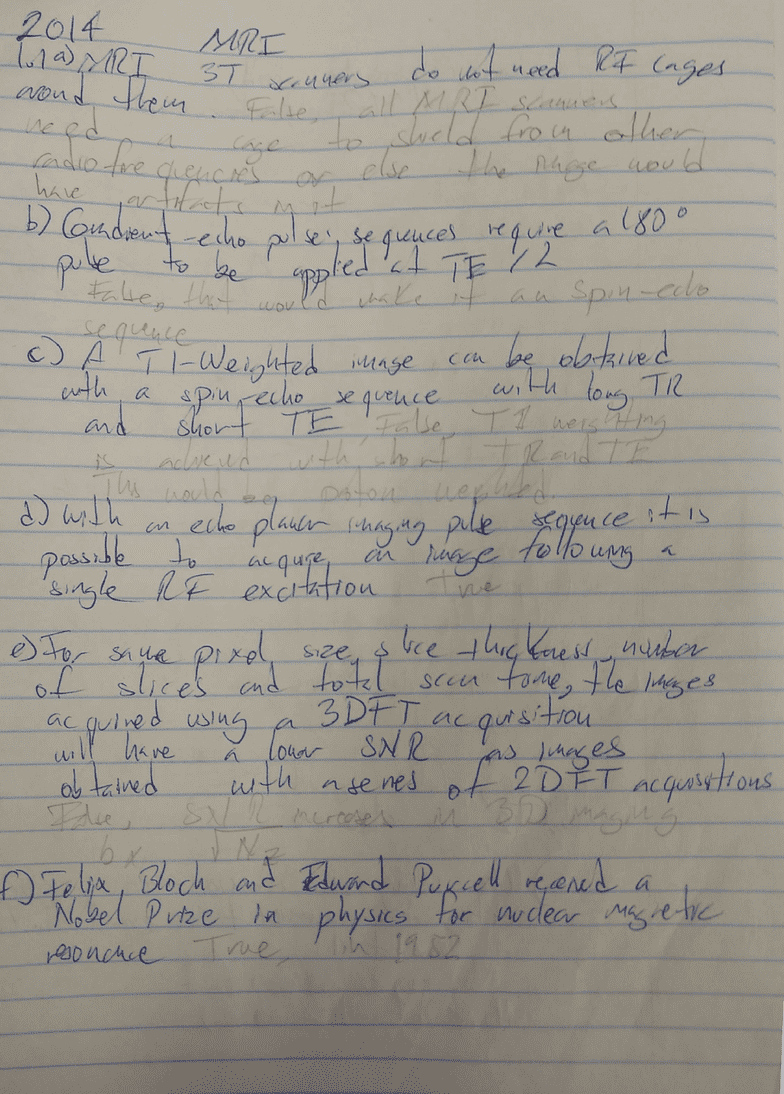 2014
MRI
1.1a) MRI 3T scanners do not need RF cages
around them. False, all MRI scanners
need a cage to shield from other
radio frequencies or else the image would
have artifacts in it
b) Gradient-echo pulse sequences require a 180°
pulse to be applied at TE/2
False, that would make it an spin-echo
sequence
c) A T1-Weighted image can be obtained
with a spin echo sequence with long TR
and short TE False, T1 weighting
is achieved with short TR and TE
This would be proton weighted.
d) With an echo planar imaging pulse sequence it is
possible to acquire an image following a
single RF excitation True
e) For same pixel size, slice thickness, number
of slices and total scan time, the images
acquired using a 3DFT acquisition
will have a lower SNR as images
obtained with a series of 2DFT acquisitions
False, SNR increases in 3D imaging
by √Nz
f) Felix Bloch and Edward Purcell received a
Nobel Prize in physics for nuclear magnetic
resonance True, in 1952